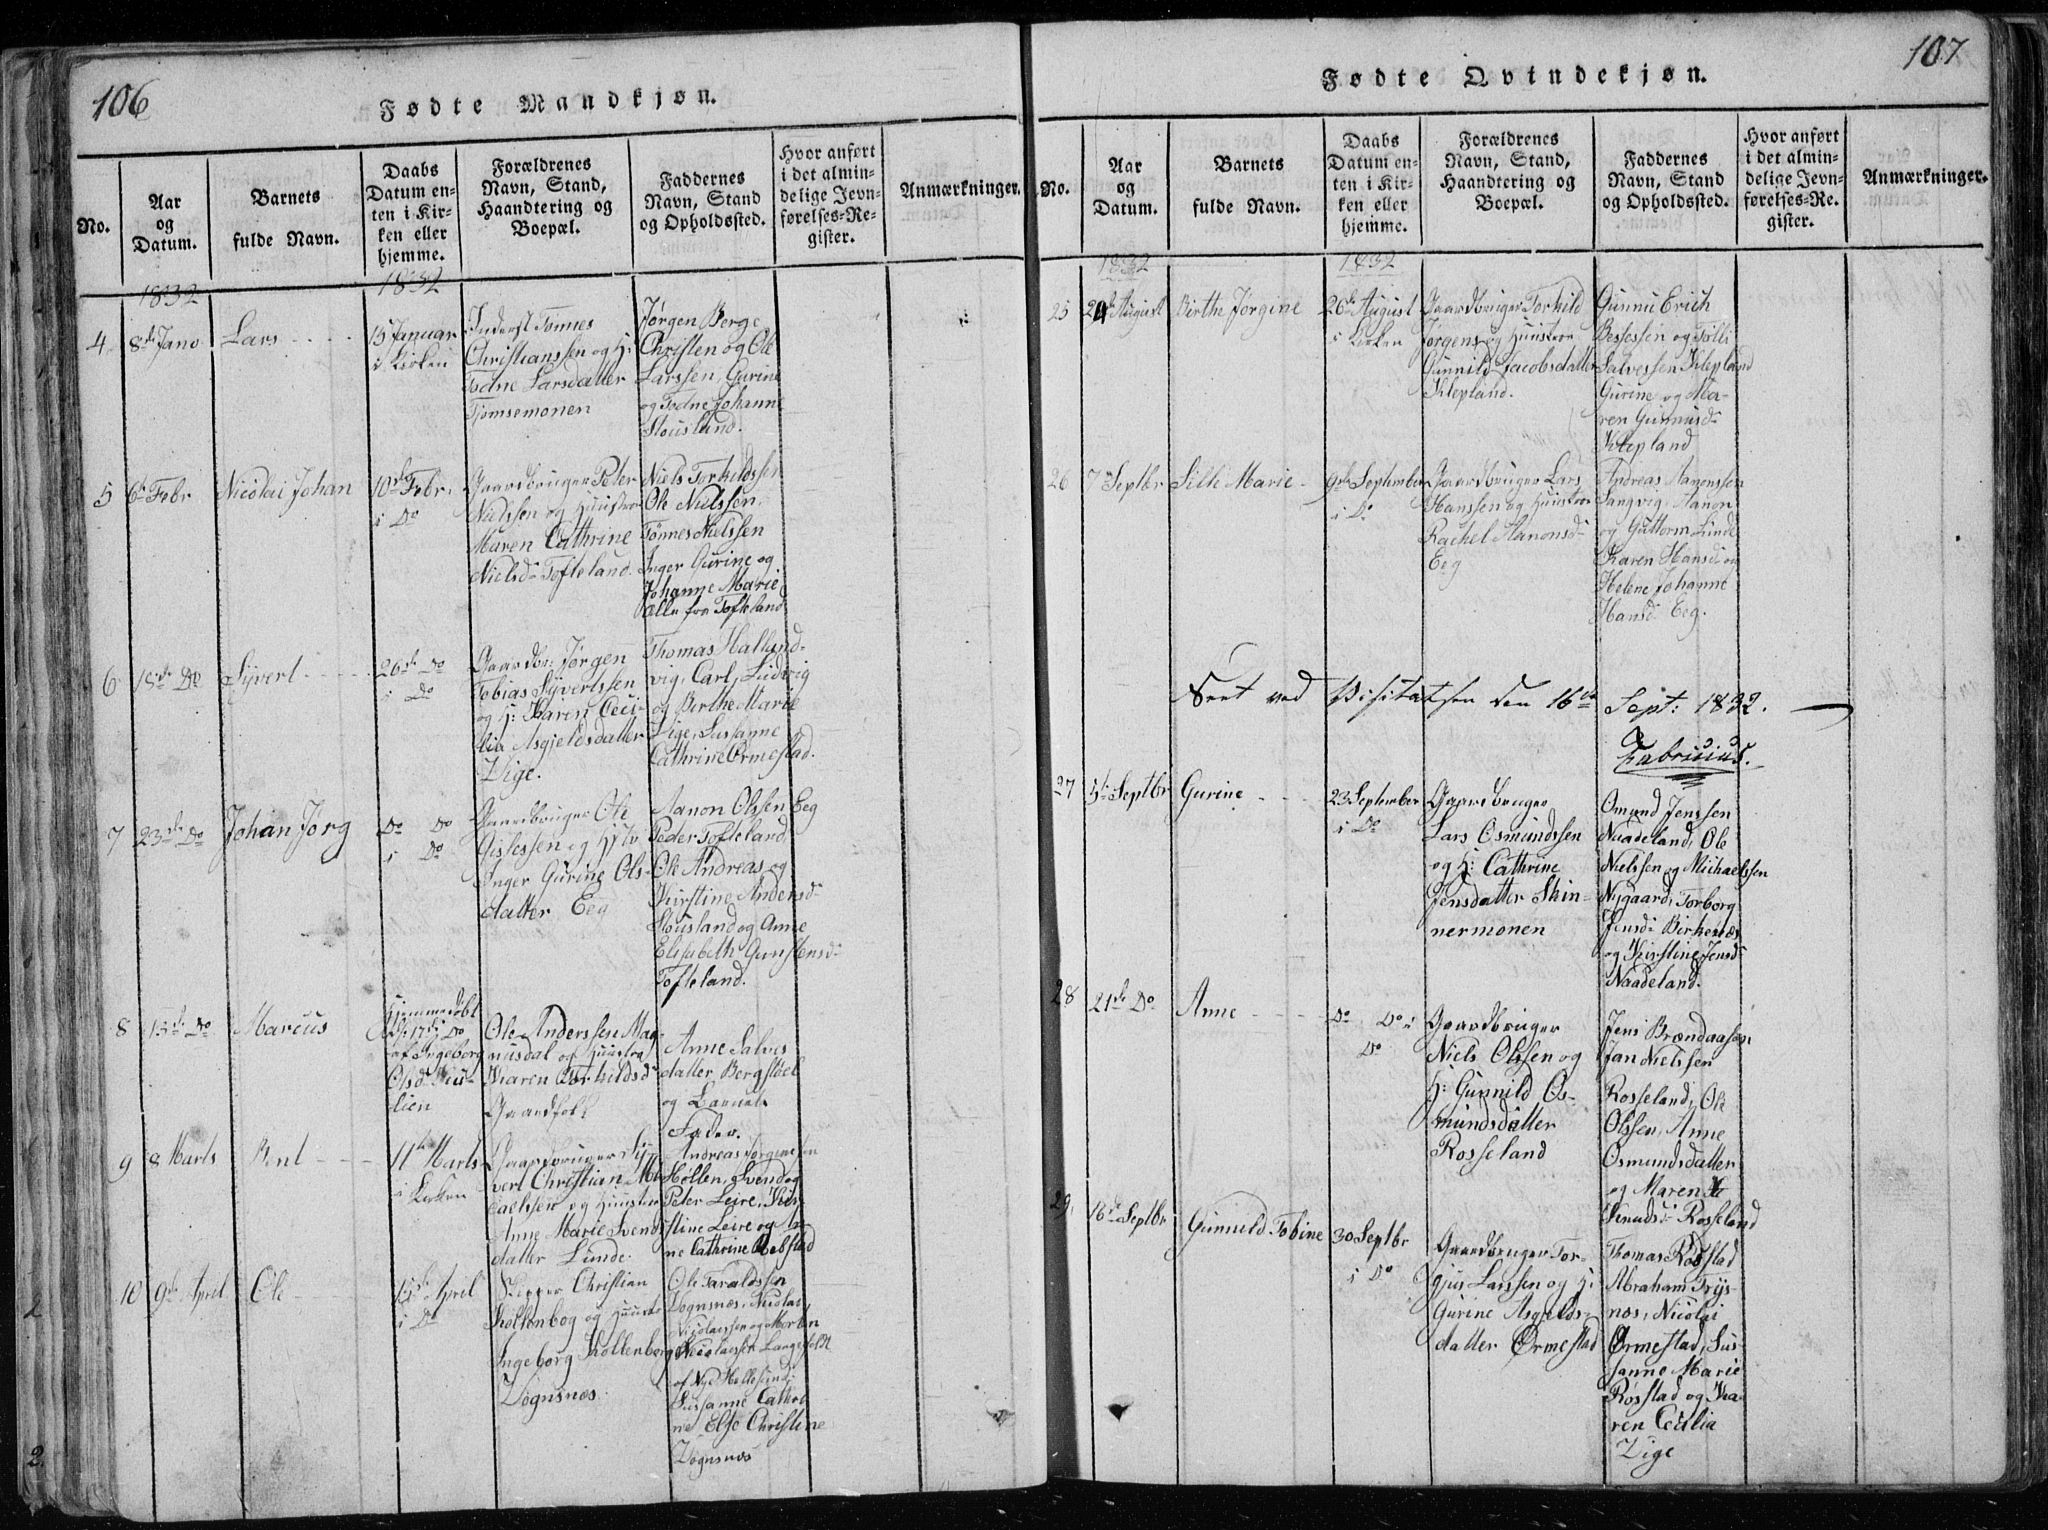 106
Fødte Mandkjøn.
No.
Aar
og
Datum.
Barnets
fulde Navn.
Daabs
Datum en-
ten i Kir-
ken eller
hjemme.
Forældrenes
Navn, Stand,
Haandtering og
Boepæl.
Faddernes
Navn, Stand
og Opholdssted.
Hvor anført
i det almin-
delige Jevn-
førelses-Re-
gister.
Anmærkninger.
1832
1832
4
8de Janv
Lars
15 Januar
i Kirken
Inderst Tønnes
Christianssen og H:
Todne Larsdatter
Tjomsemonen
Jørgen Berge
Christen og Ole
Larssen, Gurine
og Todne Johanne
Stousland.
5
6te Febr
Nicolai Johan
10de Febr.
i Do
Gaardbruger Peter
Nielssen og Huustroe
Maren Cathrine
Nielsd: Tofteland.
Niels Torkildssen
Ole Nielssen,
Tønnes Nielssen
Inger Gurine og
Johanne Marie
alle fra Tofteland
6
18de Do
Syvert
26de Do
i Do
Gaardbr: Jørgen
Tobias Syvertssen
og H: Karen Ceci-
lia Asgjeldsdatter
Vige.
Thomas Halland-
vig, Carl, Ludvig
og Berthe Marie
Vige, Susanne
Cathrine Ormestad.
7
23de Do
Johan Jørg
Do Do
i Do
Gaardbruger Ole
Gislessen og
Inger Gurine Ols-
datter Eeg
Aanon Olssen Eeg
Peder Tofteland
Ole Andreas og
Kirstine Andersd:
Stousland og Anne
Elisabeth Gunstensd:
Tofteland.
8
15de Do
Marcus
Hjemmedøbt
17de Do
af Ingeborg
Olsd:
lien
Ole Anderssen Mag-
nusdal og Huustro
Karen Torkildsd:
Gaardfolk
Anne Salves
datter Bergstøel
og Barnets
Fader.
9
8 Marts
Bent
11te Marts
i Kirken
Gaardbruger Sy-
vert Christian Mi-
caelssen og Huustroe
Anne Marie Svends
datter Lunde.
Andreas Jørgenssen
Höllen, Svend og
Peter Leire, Kir-
stine Leire og An-
ne Cathrine Rebstad
10
9de April
Ole
15de April
i Do
Skipper Christian
Kollenbog og Huustr
Ingeborg Kollenborg
Vognsnes.
Ole Taraldssen
Vognsnes, Nicolai
Nicolaessen og Morten
Nicolaessen Langefeldt
af Nye Hellesund;
Susanne Cathri
ne Else Christine
Vognsnes
107
Fødte Qvindekjøn.
No.
Aar
og
Datum.
Barnets
fulde Navn.
Daabs
Datum en-
ten i Kir-
ken eller
hjemme.
Forældrenes
Navn, Stand,
Haandtering og
Boepæl.
Faddernes
Navn, Stand
og Opholdssted.
Hvor anført
i det almin-
delige Jevn-
førelses-Re-
gister.
Anmærkninger.
1832
1832
25
24de August
Birthe Jørgine
26de August
i Kirken
Gaardbruger Torkild
Jørgens og Huustroe
Gunnild Jacobsdatter
Klepland.
Gunnu Erich
Bessessen og Tolli
Salvessen Klepland
Gurine og Ma-
ren Gunnusd:
Klepland
26
7 Septbr
Sille Marie
9de September
i Do
Gaardbruger Lars
Hanssen og Huustroe
Rachel Aanonsd:
Eeg
Andreas Aanonssen
Langvig, Aanon
og Guttorm Lunde
Karen Hansd: og
Helene Johanne
Hansd: Eeg.
Seet ved Visitatsen den 16de Sept: 1832.
Fabricius.
27
5te Septbr
Gurine
23 September
i Do
Gaardbruger
Lars Osmundssen
og H: Cathrine
Jensdatter Skin-
nermonen
Omund Jenssen
Naadeland, Ole
Nielssen og Michaelssen
Nygaard, Torborg
Jensd: Birkenes
og Kirstine Jensd:
Naadeland.
28
21de Do
Anne
Do Do i
Do
Gaardbruger
Niels Olssen og
H: Gunnild Os-
mundsdatter
Rosseland
Jens Brændaasen
Jan Nielssen
Rosseland, Ole
Olssen, Anne
Osmundsdatter
og Maren
Knudsd: Rosseland
29.
18de Septbr
Gunnild Tobine
30 Septbr
i Do
Gaardbruger Tor-
gjus Larssen og H:
Gurine Asgelds-
datter Ørmestad
Thomas Røsstad
Abraham Trys-
nes, Nicolai
Ørmestad, Sus-
sanne Marie
Røsstad og Ka-
ren Cecilia
Vige
2
2.